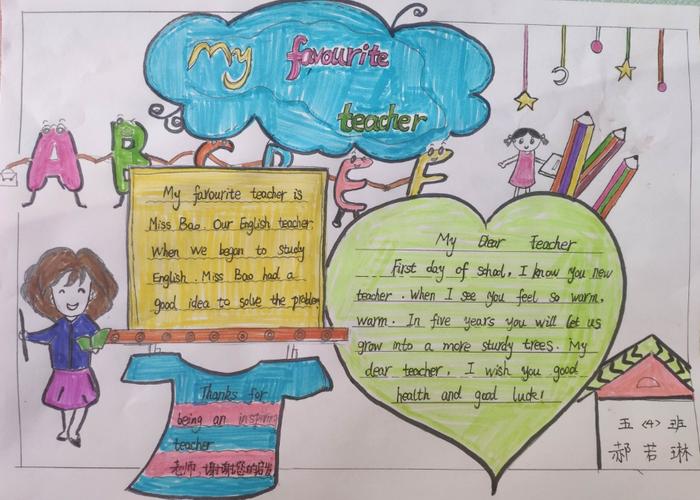 My favourite
teacher
A B C D E F
My favourite teacher is
Miss Bao. Our English teacher.
When we began to study
English. Miss Bao had a
good idea to solve the problem
My Dear Teacher
First day of school, I know you new
teacher. When I see you feel so warm,
warm. In five years you will let us
grow into a more sturdy trees. My
dear teacher, I wish you good
health and good luck!
Thanks for
being an inspiring
teacher
老师,谢谢您的启发
五〈4〉班
郝若琳